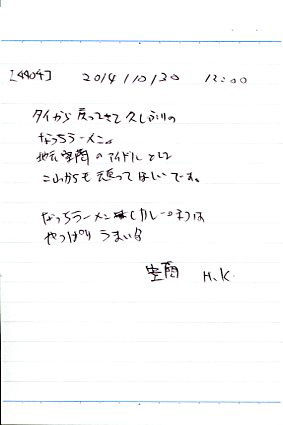 [4904] 2014/10/30 12:00
タイから戻ってきて久しぶりの
なっちラーメン。
地元室蘭のアイドルとして
これからも頑ってほしいです。
なっちラーメン(カレー)は
やっぱりうまいな
室蘭 H.K.